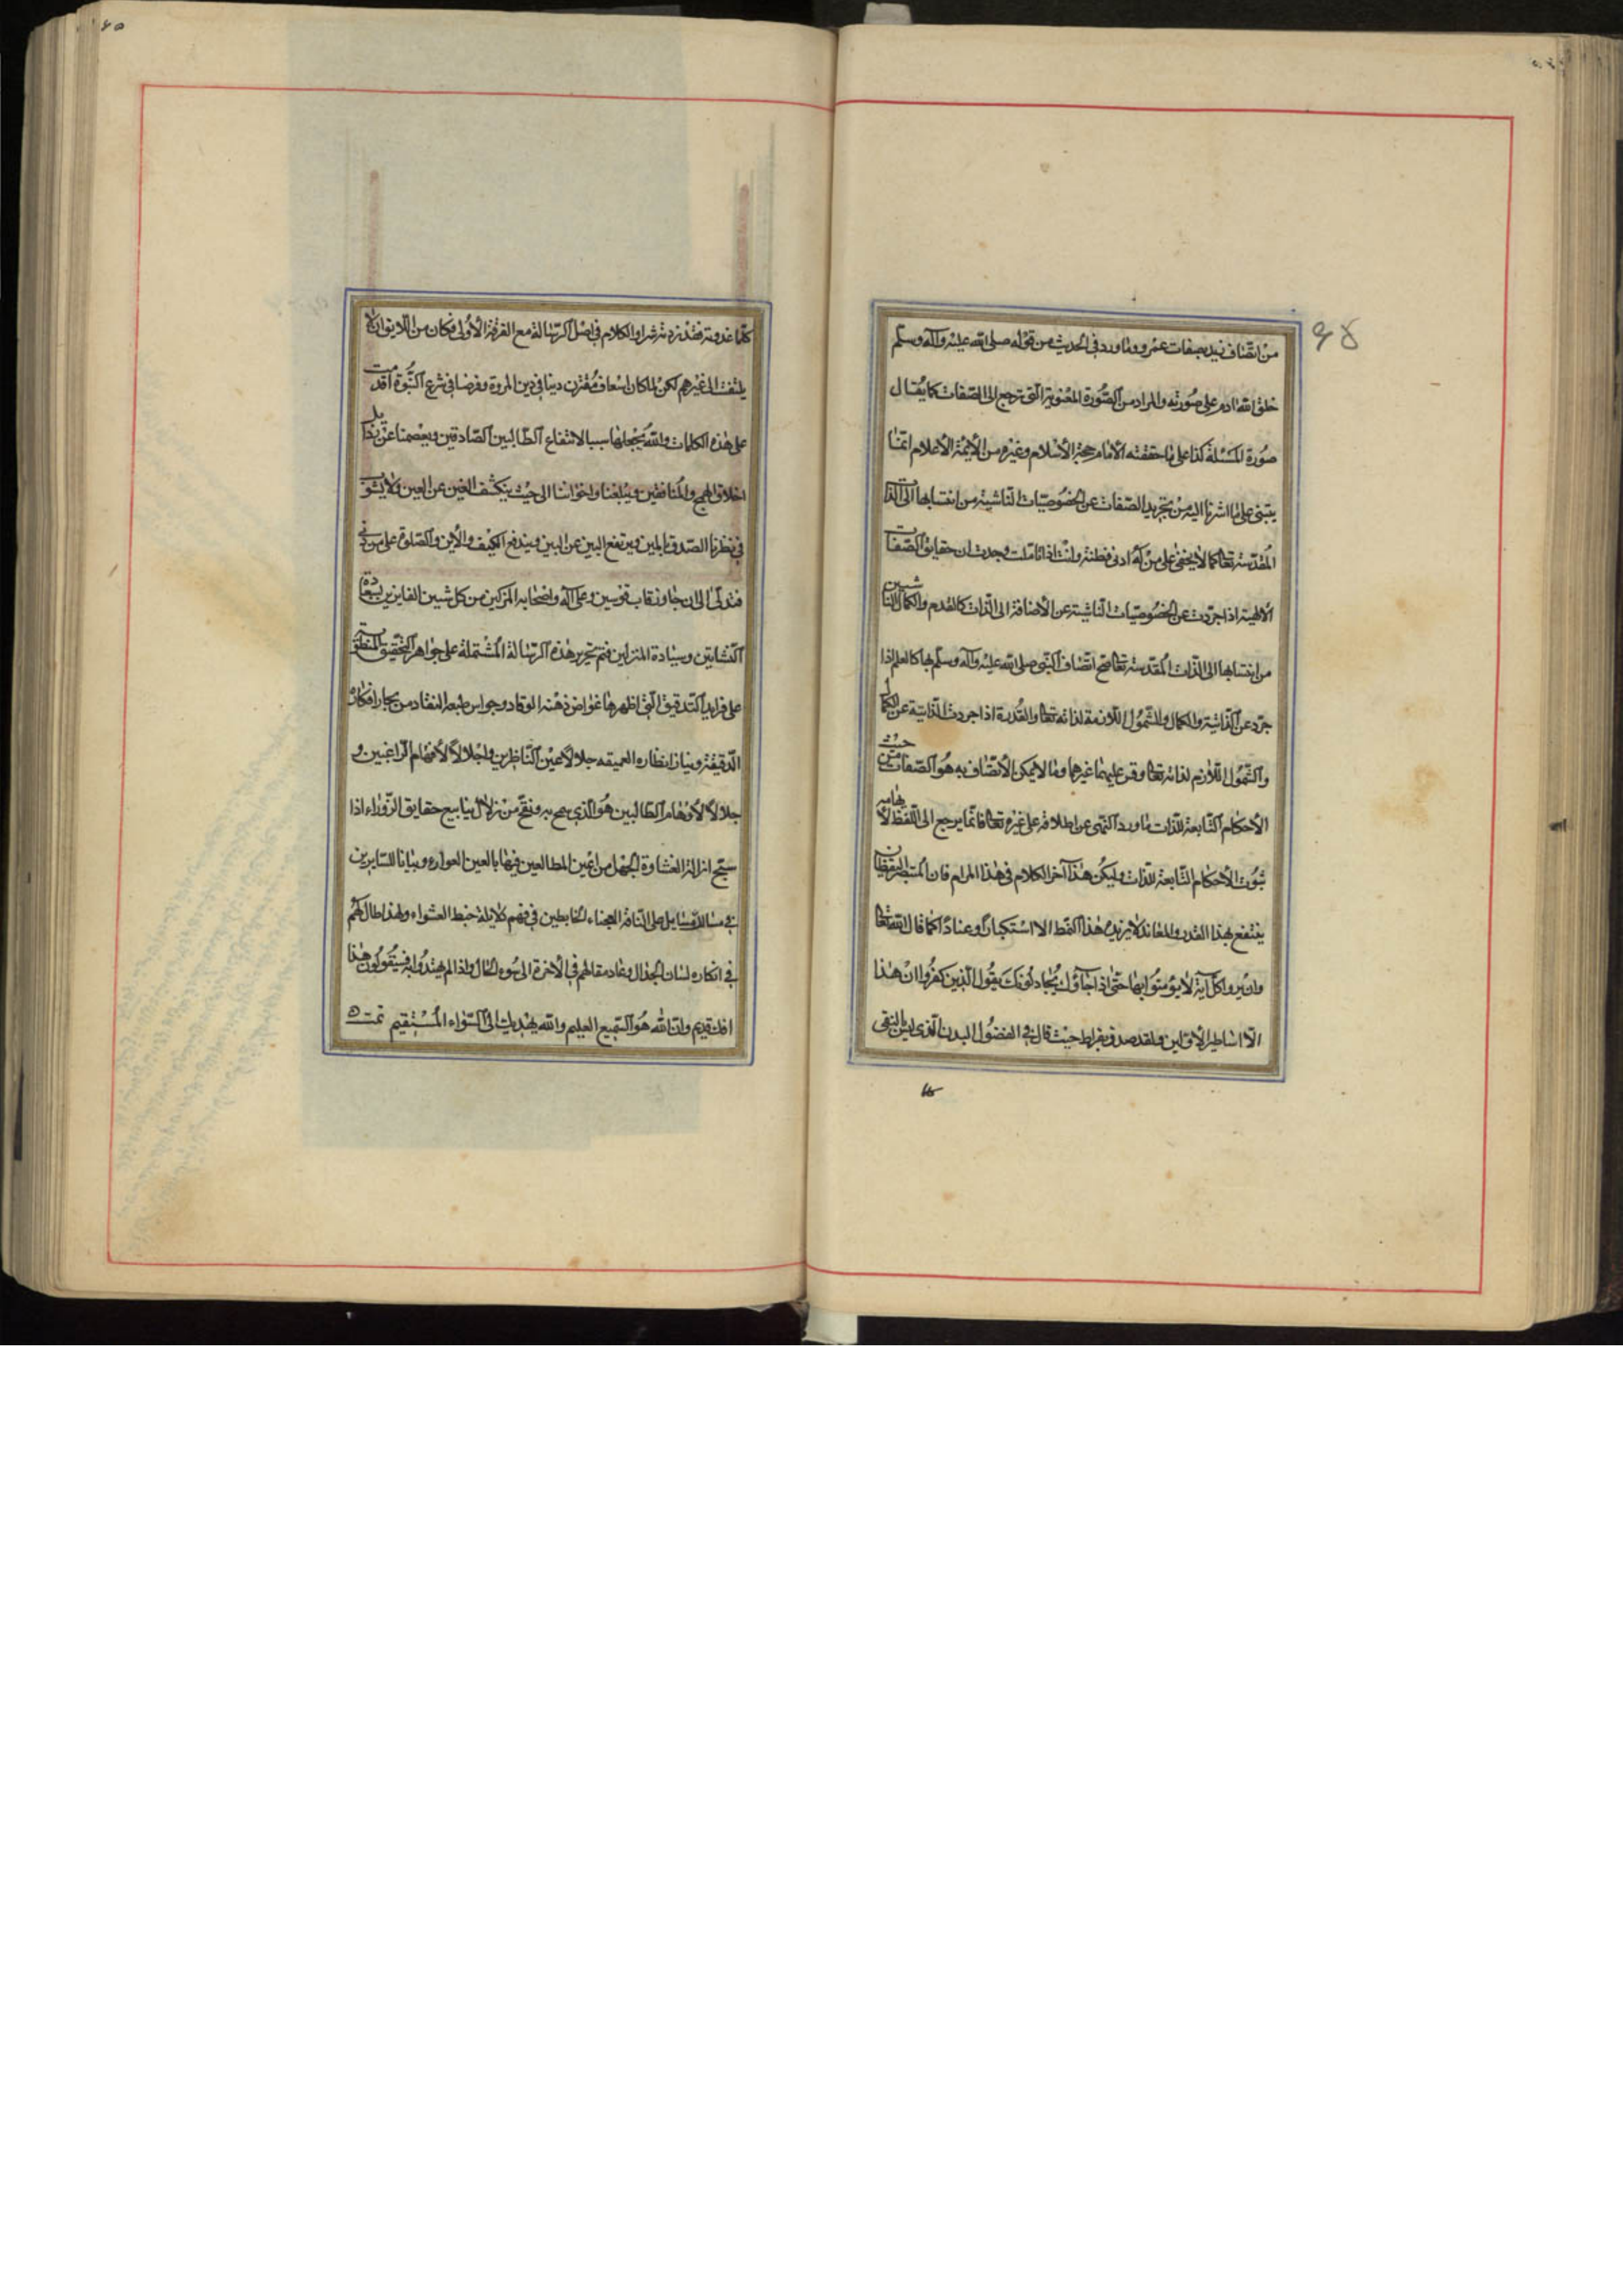 من اتصاف زيد بصفات عمرو وما ورد في الحديث من قوله صلى الله عليه وآله وسلم
خلق الله ادم على صورته والمراد من الصورة المعنوية التي ترجع الى الصفات كما يقال
صورة المسئلة كذا على ما حققته الامام حجة الاسلام وغيره من الائمة الاعلام انما
يبتنى على ما اشرنا اليه من تجريد الصفات عن الخصوصيات الناشية من انتسابها الى الذات
المقدسة تعالى كما لا يخفى على من له ادنى فطنة وانت اذا تاملت وجدت ان حقايق الصفات
الالهية اذا جردت عن الخصوصيات الناشية عن الاضافة الى الذات كالقدم والكمال الناشيين
من انتسابها الى الذات المقدسة تعالى صح اتصاف النبي صلى الله عليه وآله وسلم بها كالعلم اذا
جرد عن الذاتية والكمال والشمول اللازمة لذاته تعالى والقدرة اذا جردت الذاتية عن الكمال
والشمول اللازم لذاته تعالى وقس عليهما غيرها وما لا يمكن الاتصاف به هو الصفات من حيث
الاحكام التابعة للذات ما ورد النهى عن اطلاقه على غيره تعالى فانما يرجع الى اللفظ لايهامه
ثبوت الاحكام التابعة للذات وليكن هذا آخر الكلام في هذا المرام فان المستبصر اليقظان
ينتفع بهذا القدر والمعاند لا يزيده هذا النمط الا استكبارا وعنادا كما قال الله تعالى
وان يروا كل آية لا يؤمنوا بها حتى اذا جاؤك يجادلونك يقول الذين كفروا ان هذا
الا اساطير الاولين ولقد صدق بقراط حيث قال في الفصول البدن الذي ليس بالنقى
٩٥
كلما غدوته فقد زدته شرا والكلام في اصل الرسالة مع الفرقة الاولى فكان من اللايق ان لا
يلتفت الى غيرهم لكن لما كان اسعاف دينا في دين المروة وفرضا في شرع النبوة اقدمت
على هذه الكلمات والله يجعلها سببا لانتفاع الطالبين الصادقين ويعصمنا عن رذايل
اخلاق الهمج والمنافقين ويبلغنا واخواننا الى حيث ينكشف الغين عن العين ولا يشوب
في نظرنا الصدق بالمين ويرتفع البين عن البين ويندفع الكيف والاين والصلوة على من دنى
فتدلى الى ان جاوز قاب قوسين وعلى آله واصحابه المزكين من كل شين الفايزين بسعادة
النشاتين وسيادة المنزلين فتم تحرير هذه الرسالة المشتملة على جواهر التحقيق
على فرايد التدقيق التي اظهرها غواص ذهنه الوقاد وجواس طبعه النقاد من بحار افكاره
الدقيقة انظاره العميقه جلالا لاعين الناظرين واجلالا لافهام الراغبين و
جلالا لاوهام الطالبين هو الذي زلال ينابيع حقايق الزوراء اذا
ازالة الغشاوة الجهل من اعين المطالعين فيها بالعين العوراء وبيانا للسايرين
في على الناقة الخابطين في فهم خبط العشواء ولهذا طال لهم
في انكاره لسان الجدال وعاد مقالهم في الاخرة الى سوء الحال واذ لم يهتدوا به فسيقولون هذا
افك قديم وان الله هو السميع العليم والله يهديك الى السواء المستقيم تمت